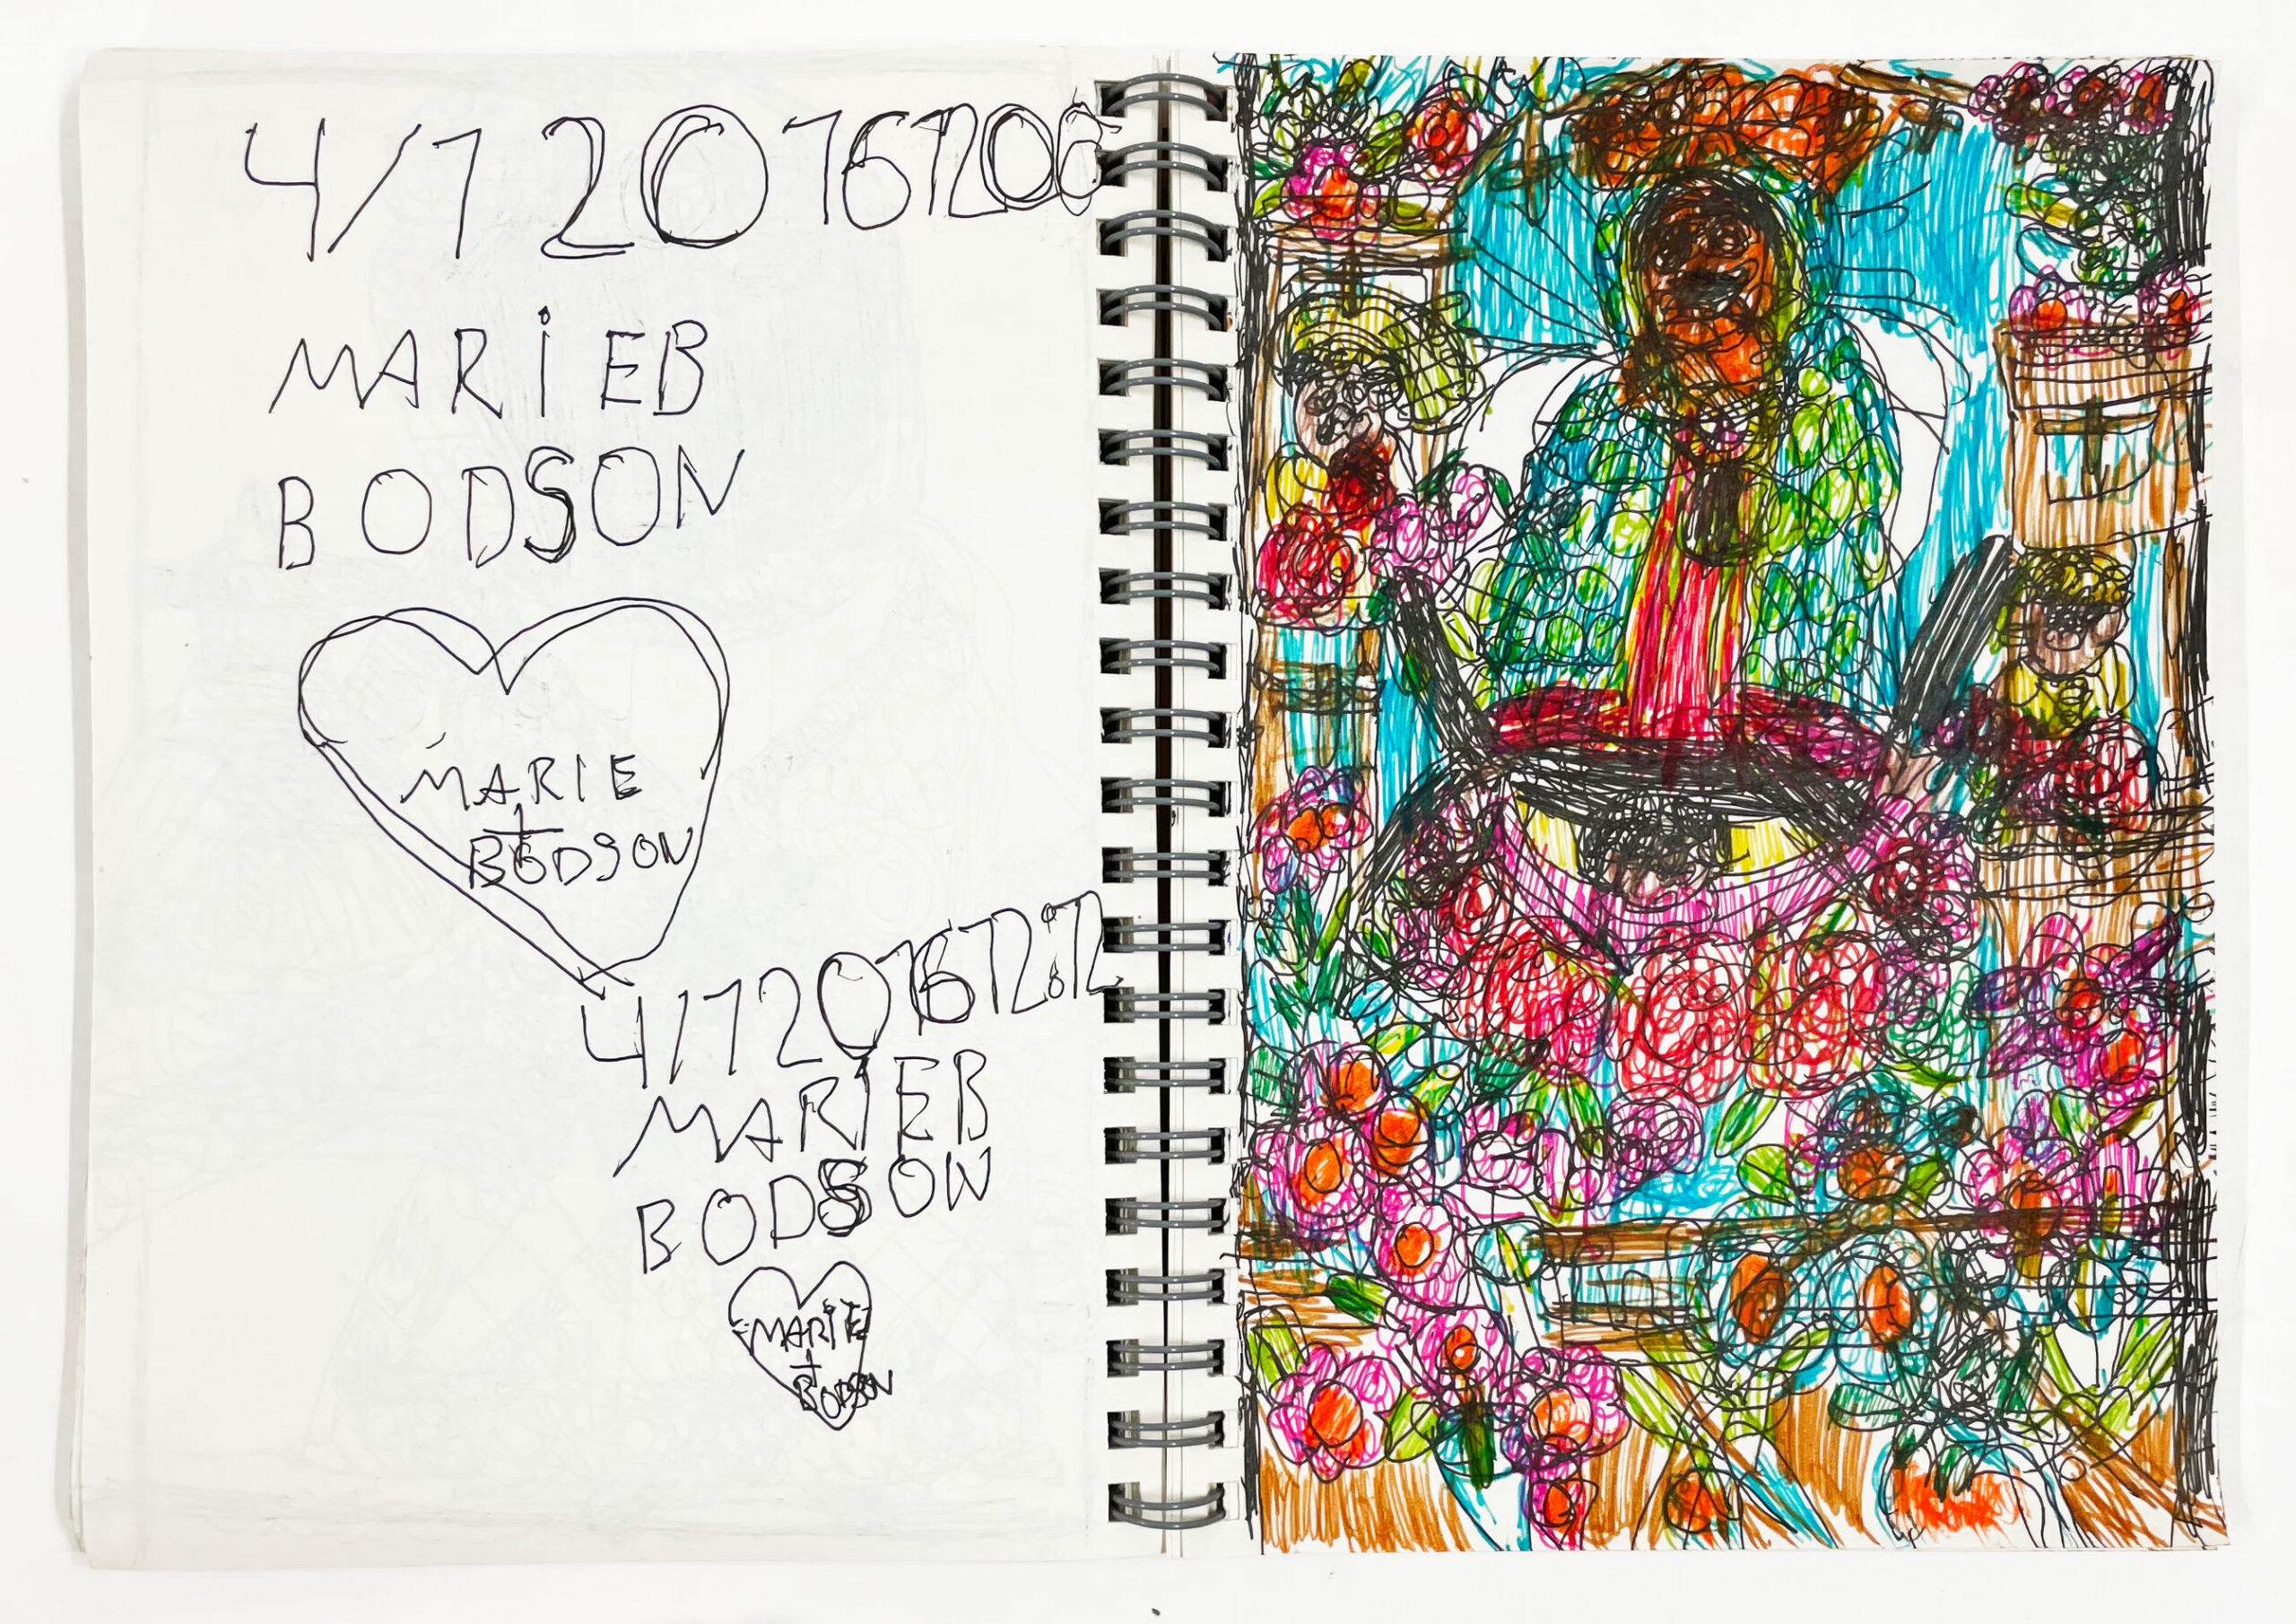 4/12016120
MARIEB
BODSON
MARIE
+
BODSON
4/1201612:12
MARIEB
BODSON
MARIE
+
BODSON